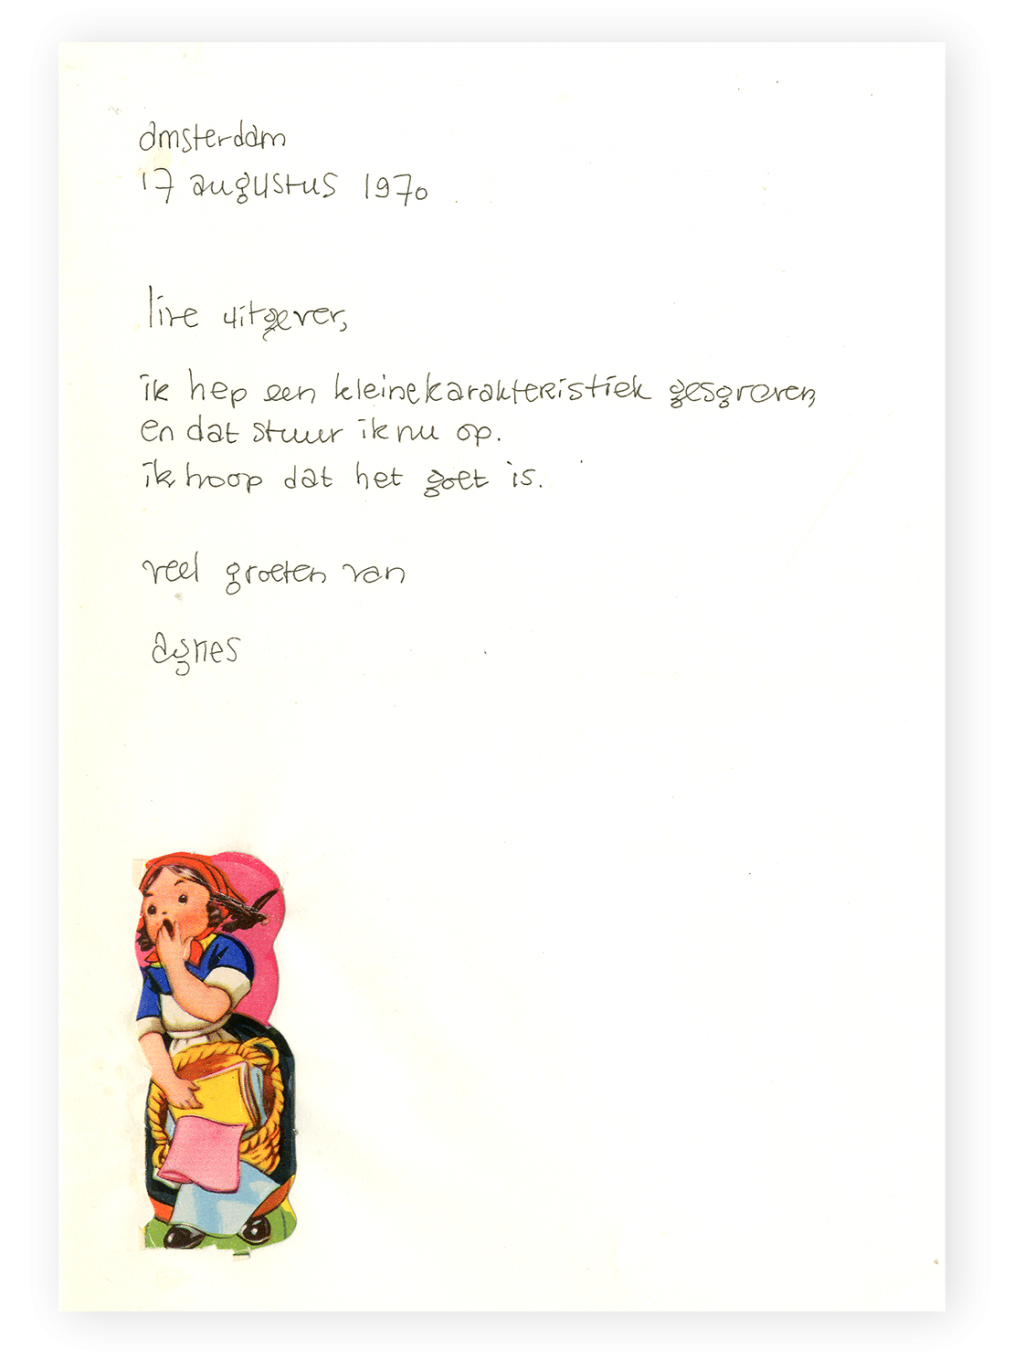 amsterdam
17 augustus 1970
live uitgever,
ik hep een kleine karakteristiek gesgreven
en dat stuur ik nu op.
ik hoop dat het goet is.
veel groeten van
agnes